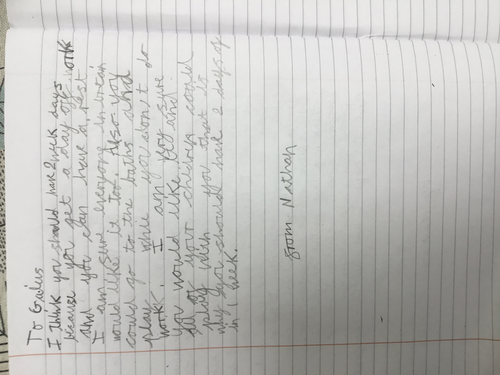 To Guiles
I think you should have 2 week days
because you get a day off work
and you can have a rest
I am sure everyone in
would like it too. Also you
could go to the baths and
play while you don't do
work. I am very sure
you would like it and
all of your children could
play with you that is
why you should have 2 days of
in 1 week.
from Nathan